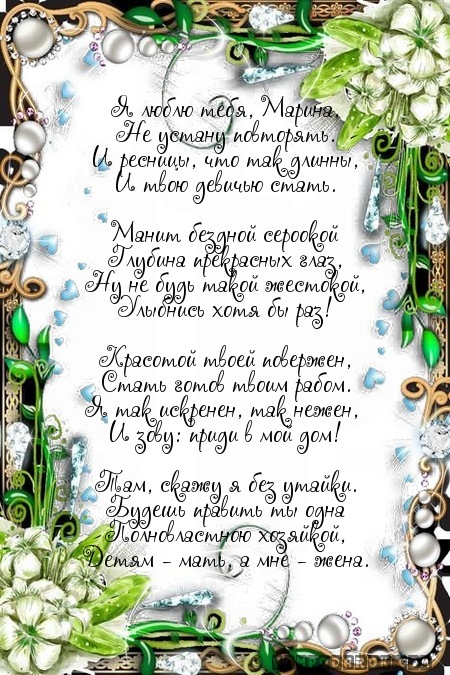 Я люблю тебя, Марина,
Не устану повторять.
И ресницы, что так длинны,
И твою девичью стать.
Манит бездной сероокой
Глубина прекрасных глаз,
Ну не будь такой жестокой,
Улыбнись хотя бы раз!
Красотой твоей повержен,
Стать готов твоим рабом.
Я так искренен, так нежен,
И зову: приди в мой дом!
Там, скажу я без утайки.
Будешь править ты одна
Полновластною хозяйкой,
Детям - мать, а мне - жена.